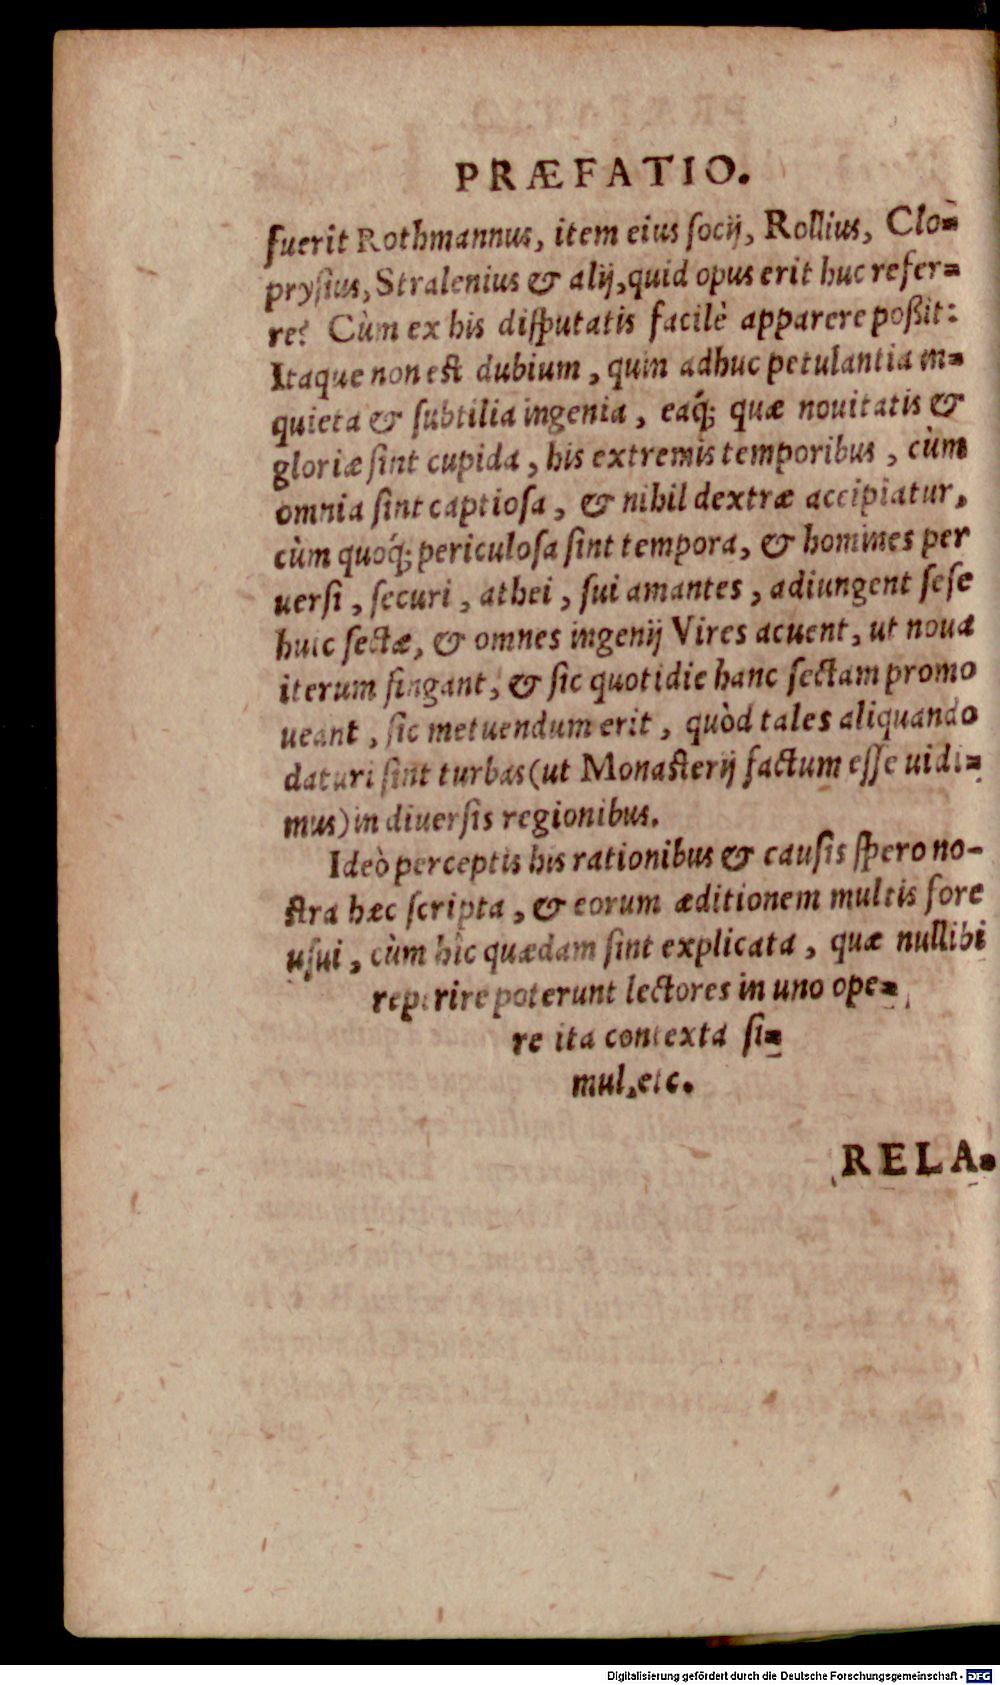 PRÆFATIO.
fuerit Rothmannus, item eius socij, Rollius, Clo-
prysius, Stralenius & alij, quid opus erit huc refer-
re? Cùm ex his disputatis facilè apparere poßit:
Itaque non est dubium, quin adhuc petulantia in-
quieta & subtilia ingenia, eaq́; quæ nouitatis &
gloriæ sint cupida, his extremis temporibus, cùm
omnia sint captiosa, & nihil dextræ accipiatur,
cùm quoq́; periculosa sint tempora, & homines per
uersi, securi, athei, sui amantes, adiungent sese
huic sectæ, & omnes ingenij Vires acuent, ut noua
iterum fingant, & sic quotidie hanc sectam promo
ueant, sic metuendum erit, quòd tales aliquando
daturi sint turbas (ut Monasterij factum esse uidi-
mus) in diuersis regionibus.
Ideò perceptis his rationibus & causis spero no-
stra hæc scripta, & eorum æditionem multis fore
usui, cùm hîc quædam sint explicata, quæ nullibi
reperire poterunt lectores in uno ope-
re ita contexta si-
mul, etc.
RELA-
Digitalisierung gefördert durch die Deutsche Forschungsgemeinschaft - DFG